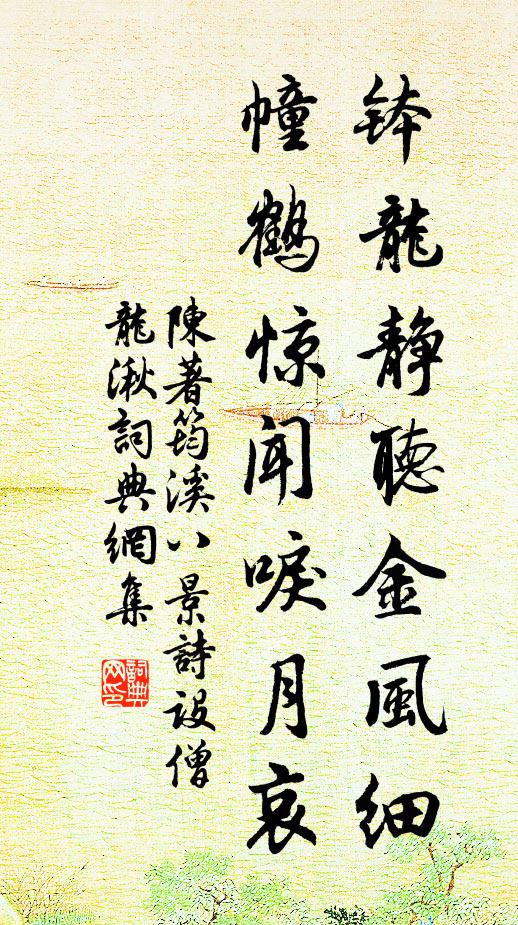 钵龍静聽金風细
幢鶴惊闻唳月哀
陳著筠溪八景詩设僧
龍湫詞典網集
詞典网印